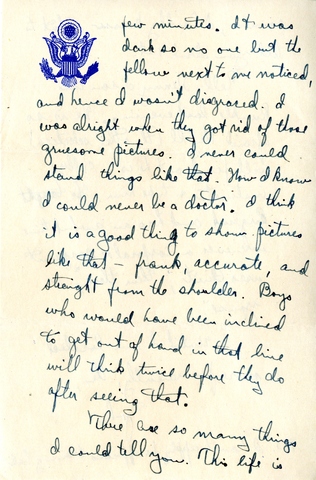 few minutes. It was
dark so no one but the
fellow next to me noticed,
and hence I wasn't disgraced. I
was alright when they got rid of those
gruesome pictures. I never could
stand things like that. Now I know
I could never be a doctor. I think
it is a good thing to show pictures
like that - frank, accurate, and
straight from the shoulder. Boys
who would have been inclined
to get out of hand in that line
will think twice before they do
after seeing that.
There are so many things
I could tell you. This life is